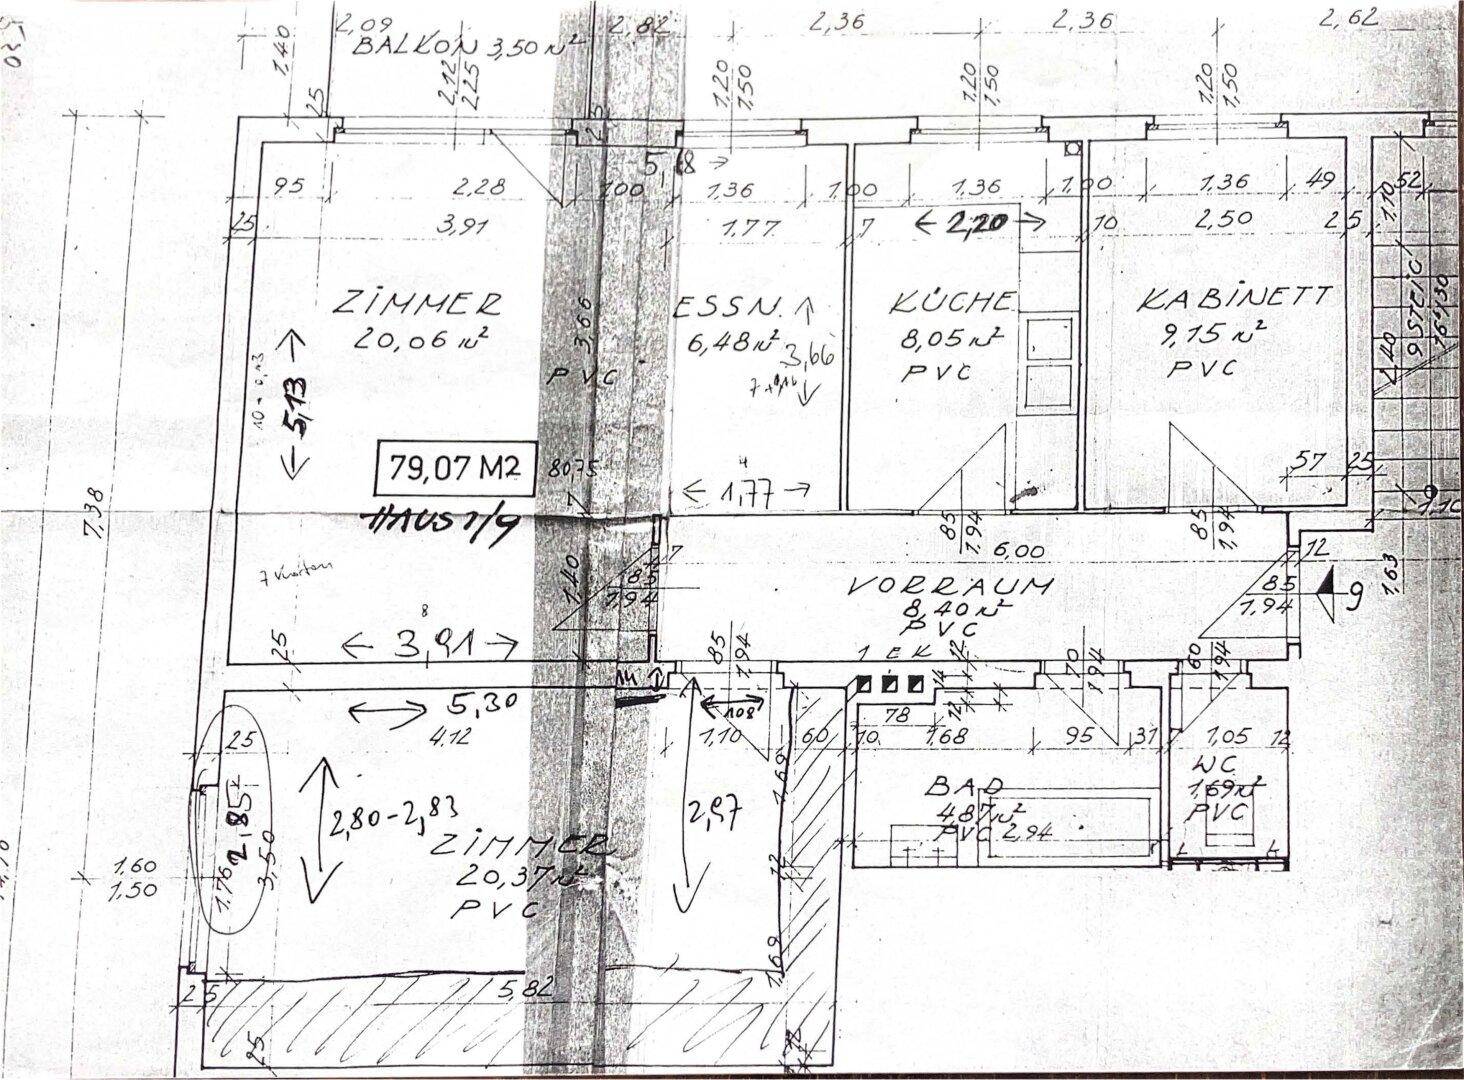 2,09
2,82
2,36
2,36
2,62
BALKON 3,50 m²
1,40
2,12
2,25
1,20
1,50
1,20
1,50
1,20
1,50
25
5,18
95
2,28
1,00
1,36
1,00
1,36
1,00
1,36
49
52
1,10
25
3,91
1,77
7
2,20
10
2,50
25
ZIMMER
20,06 m²
PVC
3,66
ESSN.
6,48 m²
3,66
KÜCHE
8,05 m²
PVC
KABINETT
9,15 m²
PVC
9 STEIG
16/30
1,40
5,13
79,07 M2
80,75
HAUS 1/9
7
4
1,77
57
25
7,38
85
1,94
85
1,94
6,00
12
1,63
7
85
1,94
1,40
VORRAUM
8,40 m²
PVC
85
1,94
9
8
3,91
25
85
1,94
1 EK
12
14
12
70
1,94
60
1,94
14
5,30
4,12
108
25
1,10
60
10
78
1,68
95
31
7
1,05
12
2,85
1,76
3,50
2,80-2,83
2,97
1,69
12
1,69
ZIMMER
20,37 m²
PVC
BAD
4,87 m²
PVC
2,94
WC
1,69 m²
PVC
1,60
1,50
25
5,82
25